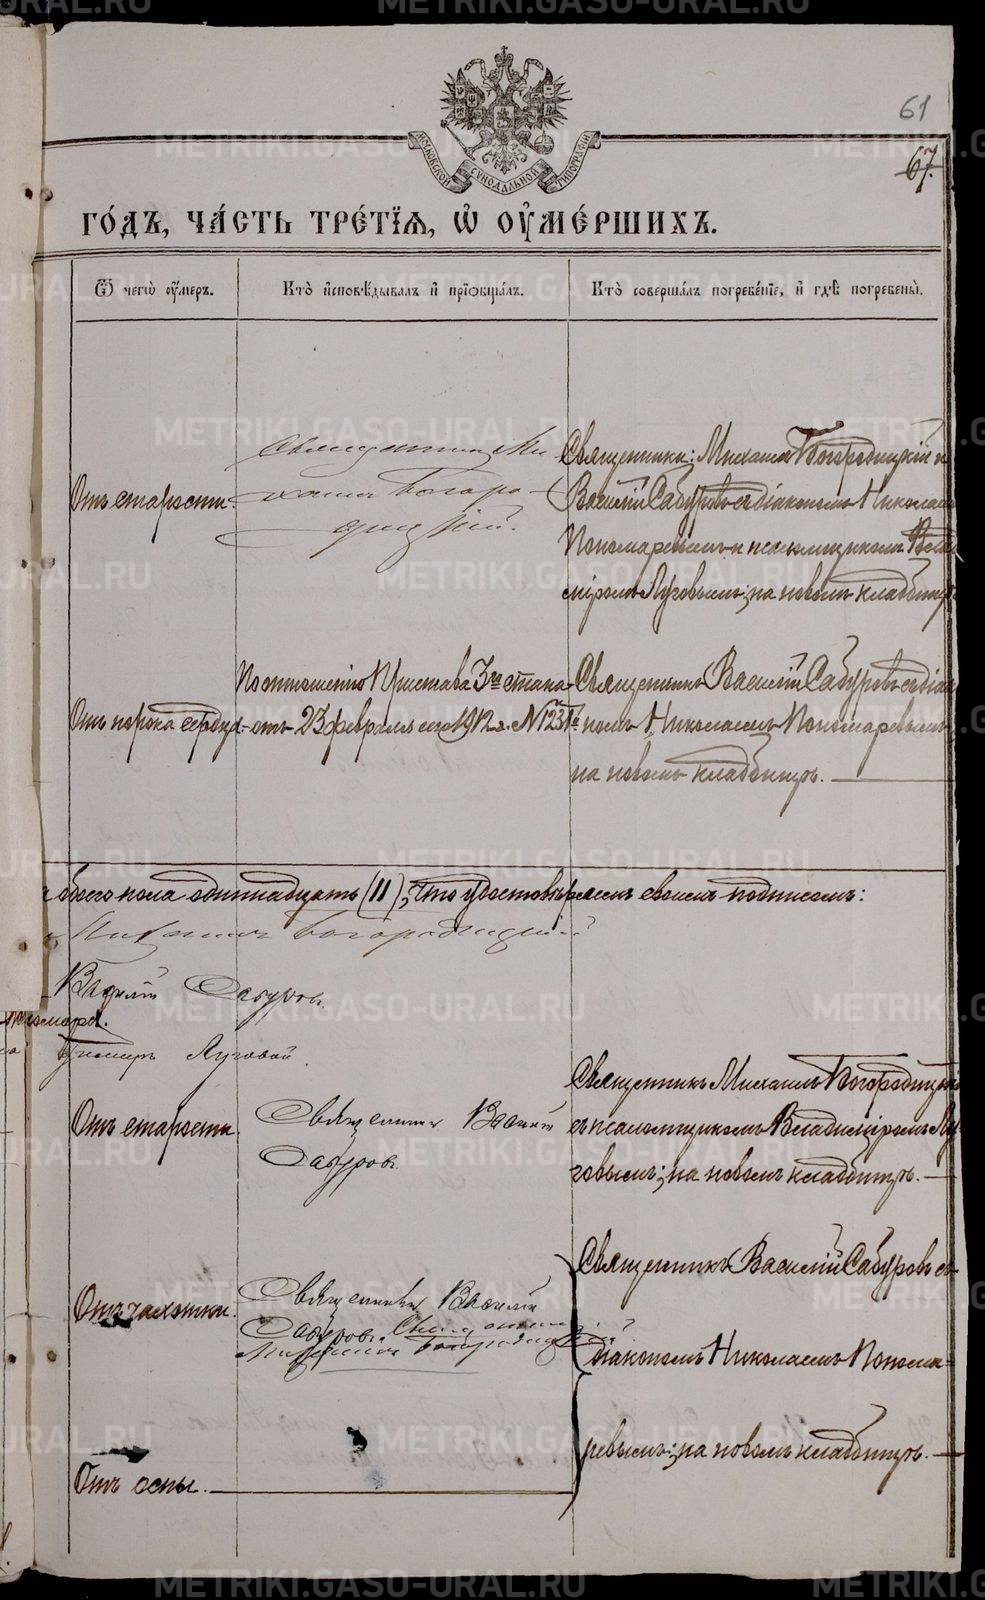 61
67.
МОСКОВСКОЙ СѴНОДАЛЬНОЙ ТИПОГРАФІИ
ГО́ДЪ, ЧА́СТЬ ТРЕ́ТЇѦ, Ѡ҆ ОУ҆МЕ́РШИХЪ.
Ѿ чегѡ̀ оу҆́меръ.
Кто̀ и҆сповѣ́дывалъ и҆ прїѡбща́лъ.
Кто̀ соверша́лъ погребе́нїе, и҆ гдѣ̀ погребены̀.
Отъ старости.
Священникъ Ми-
хаилъ Богоро-
дицкій.
Священники: Михаилъ Богородицкій и
Василій Сабуровъ съ діакономъ Николаемъ
Пономаревымъ и псаломщикомъ Влади
міромъ Луговымъ; на новомъ кладбищѣ
Отъ порока сердца.
По отношенію Пристава 3го стана
отъ 23 февраля сего 1912 г. №1231
Священникъ Василій Сабуровъ съ діако
номъ Николаемъ Пономаревымъ
на новомъ кладбищѣ.
обоего пола одиннадцать (11), что удостовѣряемъ своимъ подписомъ:
Михаилъ Богородицкій
Василій Сабуровъ.
Луговой.
Отъ старости.
Священникъ Василій
Сабуровъ.
Священникъ Михаилъ Богородицкій
съ псаломщикомъ Владиміромъ Лу
говымъ; на новомъ кладбищѣ.
Отъ чахотки.
Священникъ Василій
Сабуровъ. Священникъ
Михаилъ Богородицкій
Священникъ Василій Сабуровъ съ
діакономъ Николаемъ Понома-
ревымъ; на новомъ кладбищѣ.
Отъ оспы.
METRIKI.GASO-URAL.RU